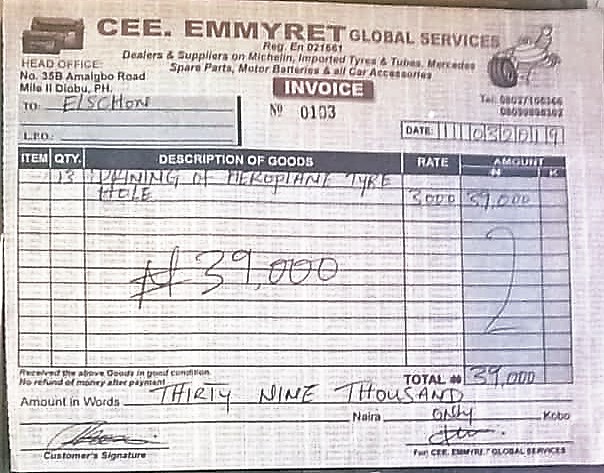 CEE. EMMYRET GLOBAL SERVICES
Reg. En 021661
Dealers & Suppliers on Michelin, Imported Tyres & Tubes, Mercedes
Spare Parts, Motor Batteries & all Car Accessories
HEAD OFFICE:
No. 35B Amaigbo Road
Mile II Diobu, PH.
INVOICE
Nº 0103
TO: ELSCHON
L.P.O.:
DATE: 032019
ITEM QTY. DESCRIPTION OF GOODS RATE AMOUNT
₦ K
13 OF AEROPLANE TYRE
HOLE 3000 39,000
₦39,000
Received the above Goods in good condition
No refund of money after payment
TOTAL ₦ 39,000
Amount in Words THIRTY NINE THOUSAND
Naira ONLY Kobo
Customer's Signature
For: CEE. EMMYRET GLOBAL SERVICES